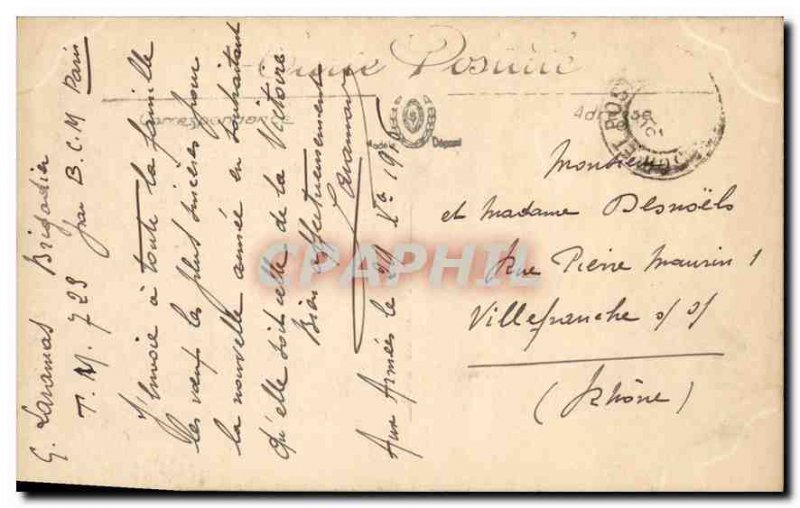 Carte Postale
Correspondance
Adresse
Modèle Déposé
G. Lavarenas Brigadier
T. M. 723 par B.C.M Paris
J'envoie à toute la famille
les vœux les plus sincères pour
la nouvelle année en souhaitant
qu'elle soit celle de la Victoire.
Bien affectueusement
Aux Armées le 29 Xbre 19
Monsieur
et Madame Desnoëls
Rue Pierre Maurin 1
Villefranche s/s
(Rhône)
CPAPHIL